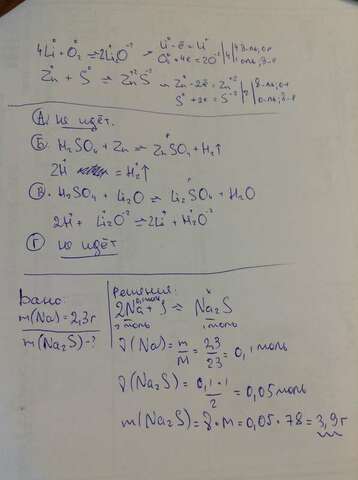 4Li⁰ + O₂⁰ = 2Li₂⁺O⁻² Li⁰ - ē = Li⁺ | 4
O₂⁰ + 4ē = 2O⁻² | 4 | 1
Zn⁰ + S⁰ = Zn⁺²S⁻² Zn⁰ - 2ē = Zn⁺²
S⁰ + 2ē = S⁻²
А) не идёт.
Б) H₂SO₄ + Zn = ZnSO₄ + H₂↑
2H⁺ = H₂⁰↑
В) H₂SO₄ + Li₂O = Li₂SO₄ + H₂O
2H⁺ + Li₂O⁻² = 2Li⁺ + H₂O⁻²
Г) не идёт
Дано:
m(Na) = 2,3г
m(Na₂S) - ?
Решения:
0,1моль x
2Na + S = Na₂S
2моль 1моль
ν(Na) = m/M = 2,3/23 = 0,1 моль
ν(Na₂S) = 0,1·1/2 = 0,05 моль
m(Na₂S) = ν·M = 0,05·78 = 3,9г